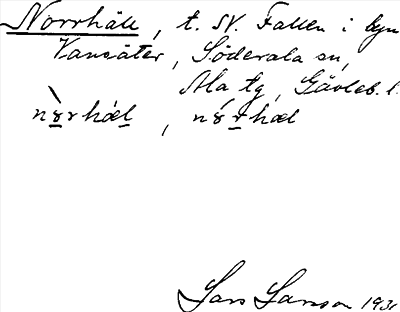 Norrhäll, t. SV. Fallen i byn
Vansäter, Söderala sn,
Ala tg, Gävleb. l.
Lars Larsson 193